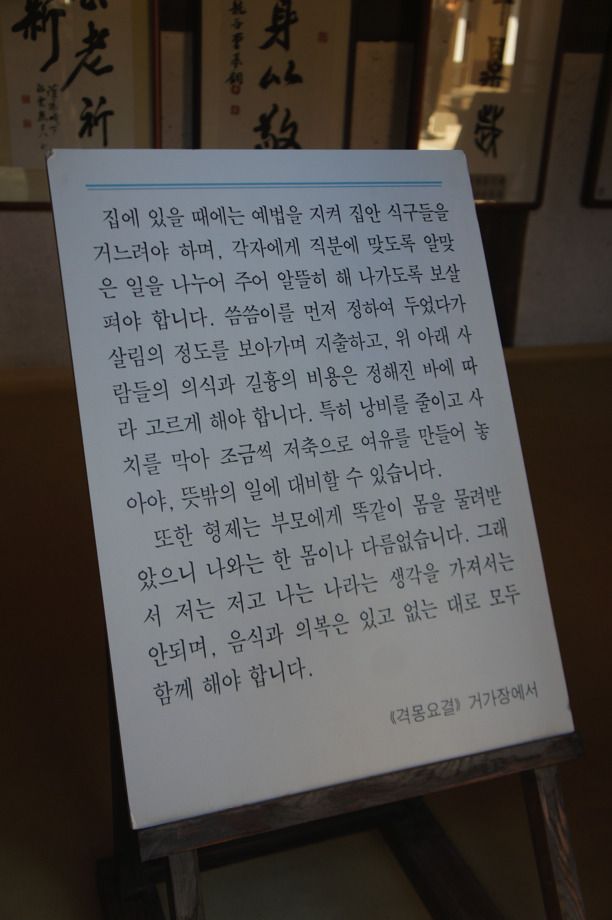 老祈
新
身以敬
집에 있을 때에는 예법을 지켜 집안 식구들을
거느려야 하며, 각자에게 직분에 맞도록 알맞
은 일을 나누어 주어 알뜰히 해 나가도록 보살
펴야 합니다. 씀씀이를 먼저 정하여 두었다가
살림의 정도를 보아가며 지출하고, 위 아래 사
람들의 의식과 길흉의 비용은 정해진 바에 따
라 고르게 해야 합니다. 특히 낭비를 줄이고 사
치를 막아 조금씩 저축으로 여유를 만들어 놓
아야, 뜻밖의 일에 대비할 수 있습니다.
또한 형제는 부모에게 똑같이 몸을 물려받
았으니 나와는 한 몸이나 다름없습니다. 그래
서 저는 저고 나는 나라는 생각을 가져서는
안되며, 음식과 의복은 있고 없는 대로 모두
함께 해야 합니다.
《격몽요결》 거가장에서